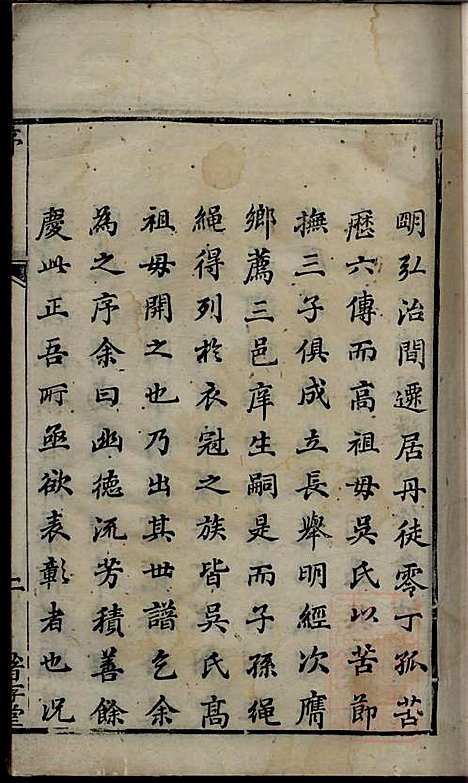 明弘治間遷居丹徒零丁孤苦
歷六傳而高祖母吳氏以苦節
撫三子俱成立長舉明經次膺
鄉薦三邑庠生嗣是而子孫繩
繩得列於衣冠之族皆吳氏高
祖母開之也乃出其世譜乞余
為之序余曰幽德流芳積善餘
慶此正吾所亟欲表彰者也況
序
二